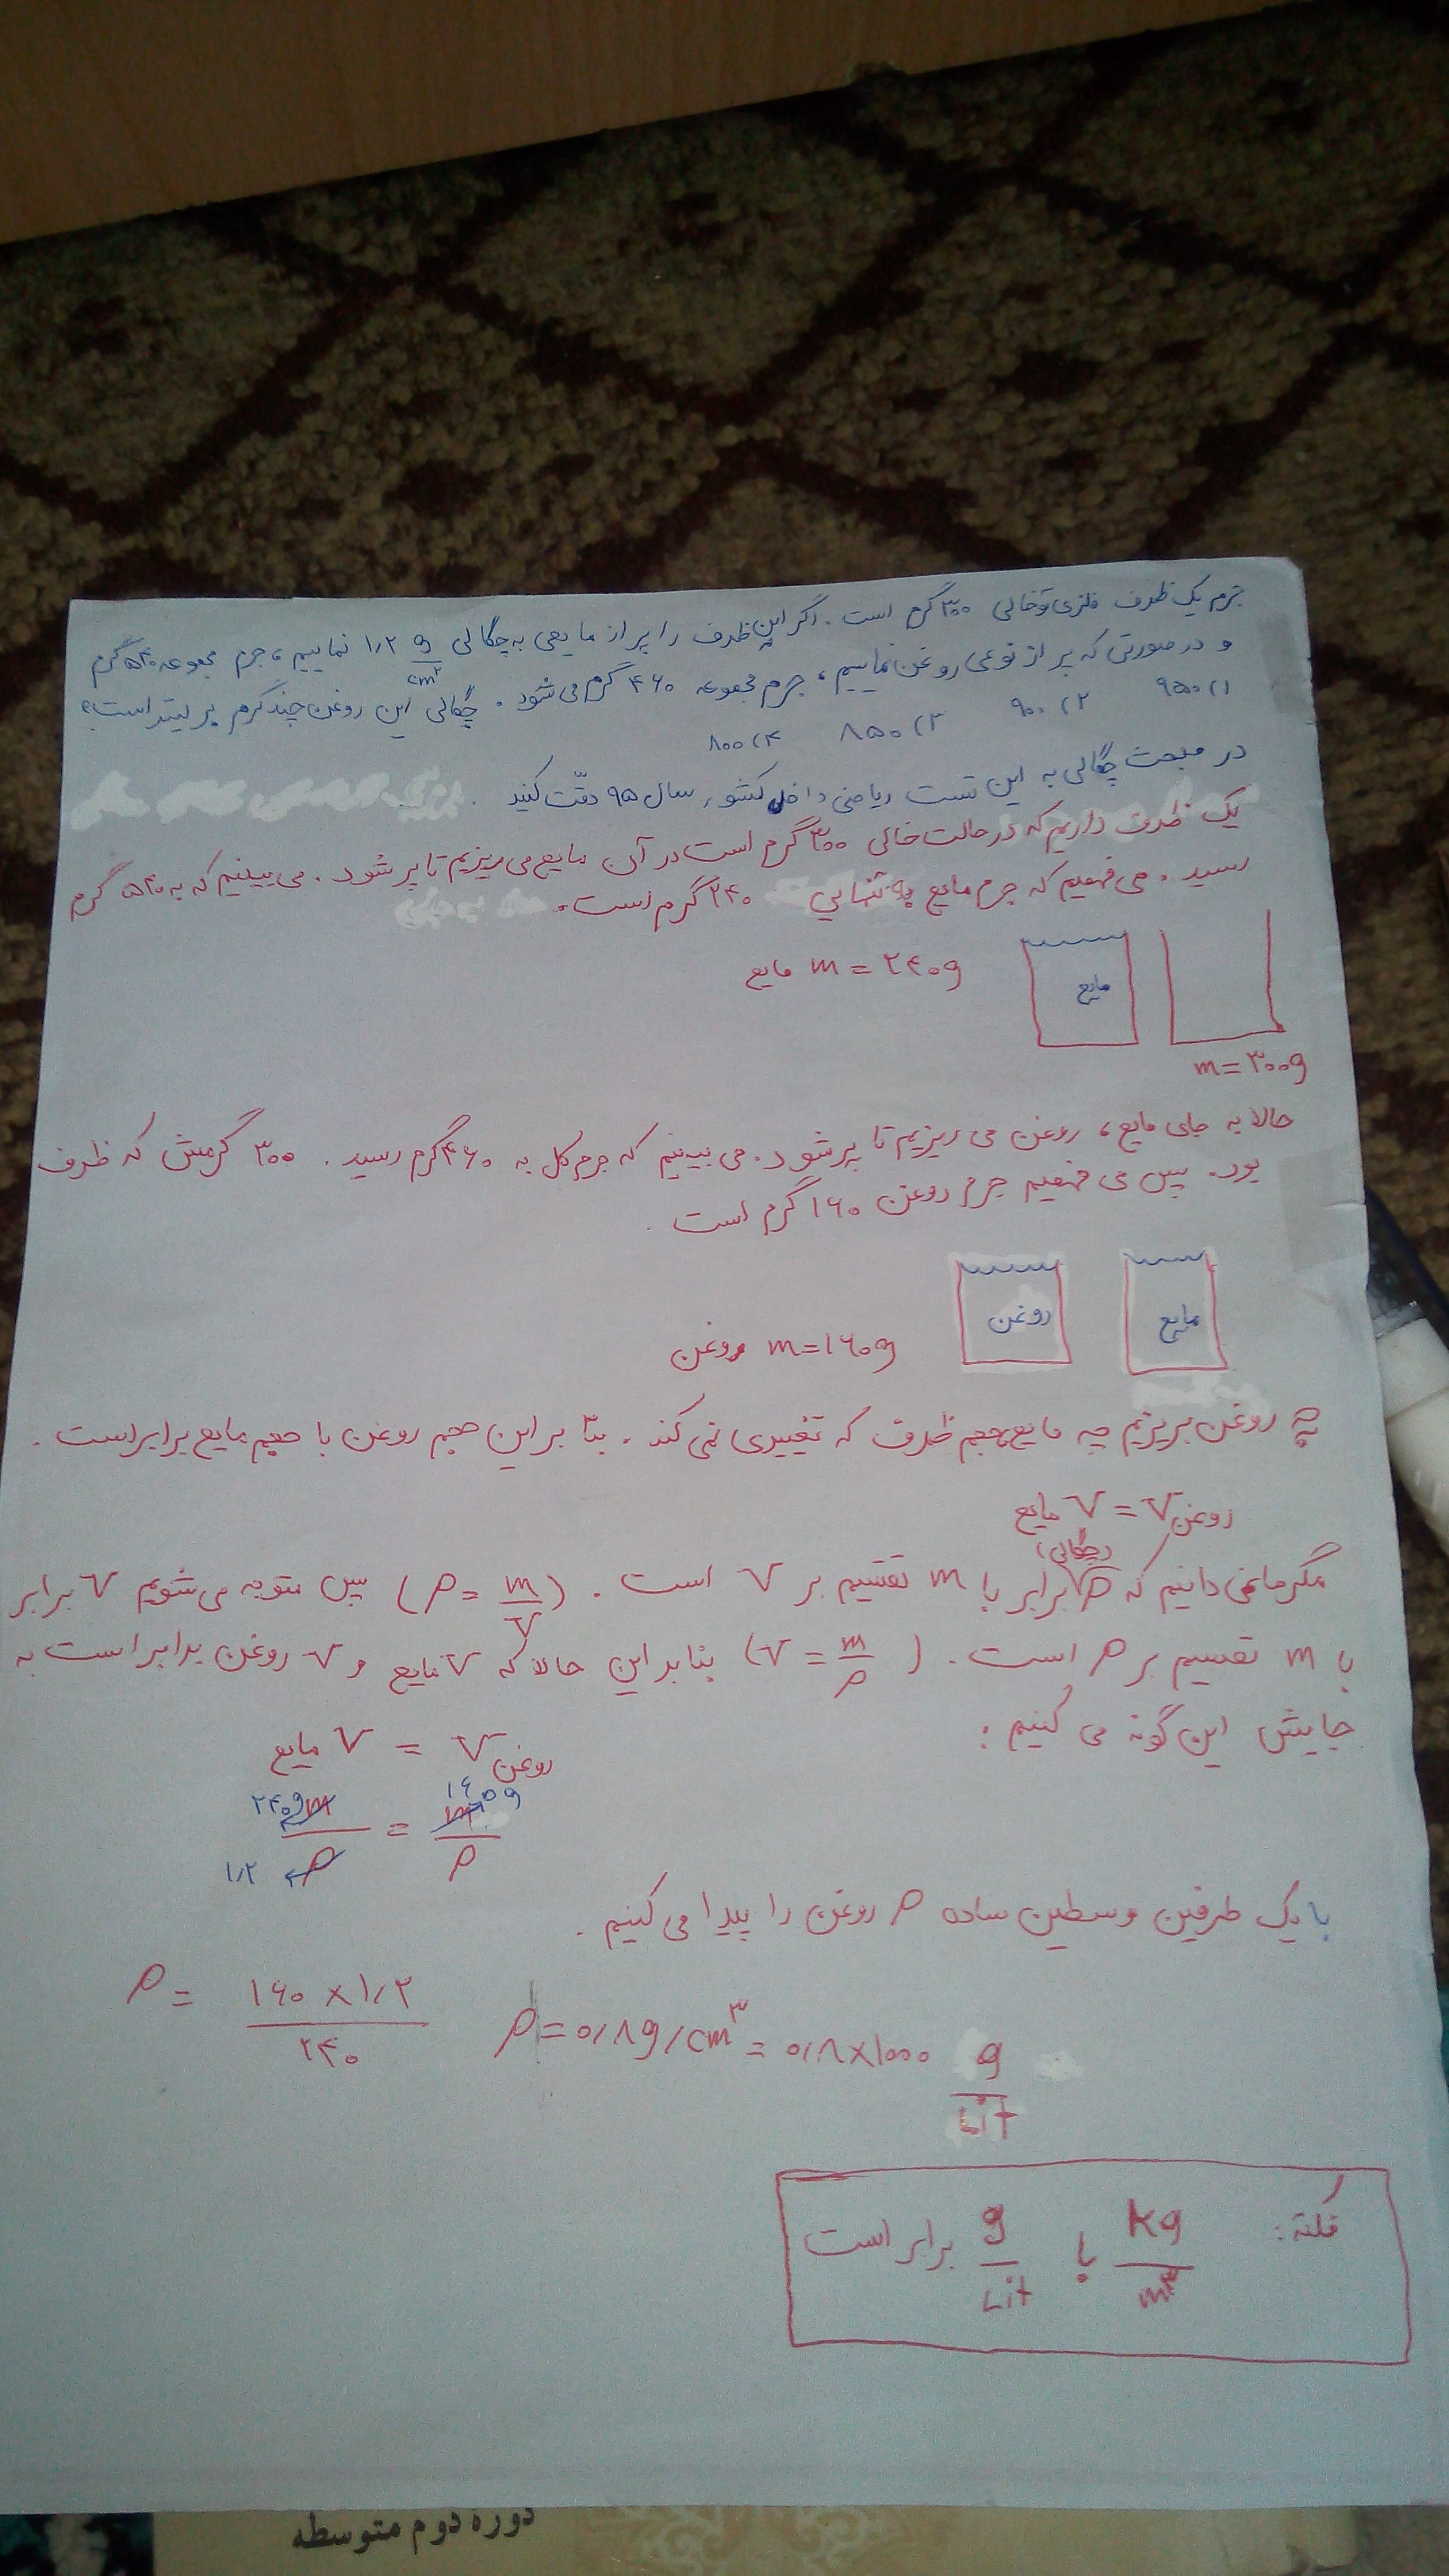 جرم یک ظرف فلزی توخالی ۳۰۰ گرم است. اگر این ظرف را پر از مایعی به چگالی ۱٫۲ g/cm³ نماییم، جرم مجموعه ۵۴۰ گرم
و در صورتی که پر از نوعی روغن نماییم، جرم مجموعه ۴۶۰ گرم می شود. چگالی این روغن چند گرم بر لیتر است؟
۱) ۹۵۰ ۲) ۹۰۰ ۳) ۸۵۰ ۴) ۸۰۰
در مبحث چگالی به این تست ریاضی داخل کشور سال ۹۵ دقّت کنید.
یک ظرف داریم که در حالت خالی ۳۰۰ گرم است در آن مایع می ریزیم تا پر شود. می بینیم که به ۵۴۰ گرم
رسید. می فهمیم که جرم مایع به تنهایی ۲۴۰ گرم است.
مایع m = ۲۴۰g
مایع
m = ۳۰۰g
حالا به جای مایع، روغن می ریزیم تا پر شود. می بینیم که جرم کل به ۴۶۰ گرم رسید. ۳۰۰ گرمش که ظرف
بود. پس می فهمیم جرم روغن ۱۶۰ گرم است.
مایع
روغن
روغن m = ۱۶۰g
چه روغن بریزیم چه مایع حجم ظرف که تغییری نمی کند. بنا بر این حجم روغن با حجم مایع برابر است.
مایع V = V روغن
(چگالی)
مگر ما نمی دانیم که ρ برابر با m تقسیم بر V است. (ρ = m/V) پس متوجه می شویم V برابر
با m تقسیم بر ρ است. (V = m/ρ) بنابراین حالا که V مایع و V روغن برابر است به
جایش این گونه می کنیم:
مایع V = V روغن
۲۴۰g m/ρ ۱٫۲ = ۱۶۰g m/ρ
با یک طرفین وسطین ساده ρ روغن را پیدا می کنیم.
ρ = ۱۶۰ × ۱٫۲/۲۴۰ ρ = ۰٫۸ g/cm³ = ۰٫۸ × ۱۰۰۰ g/Lit
نکته: kg/m³ با g/Lit برابر است
دورهٔ دوم متوسطه